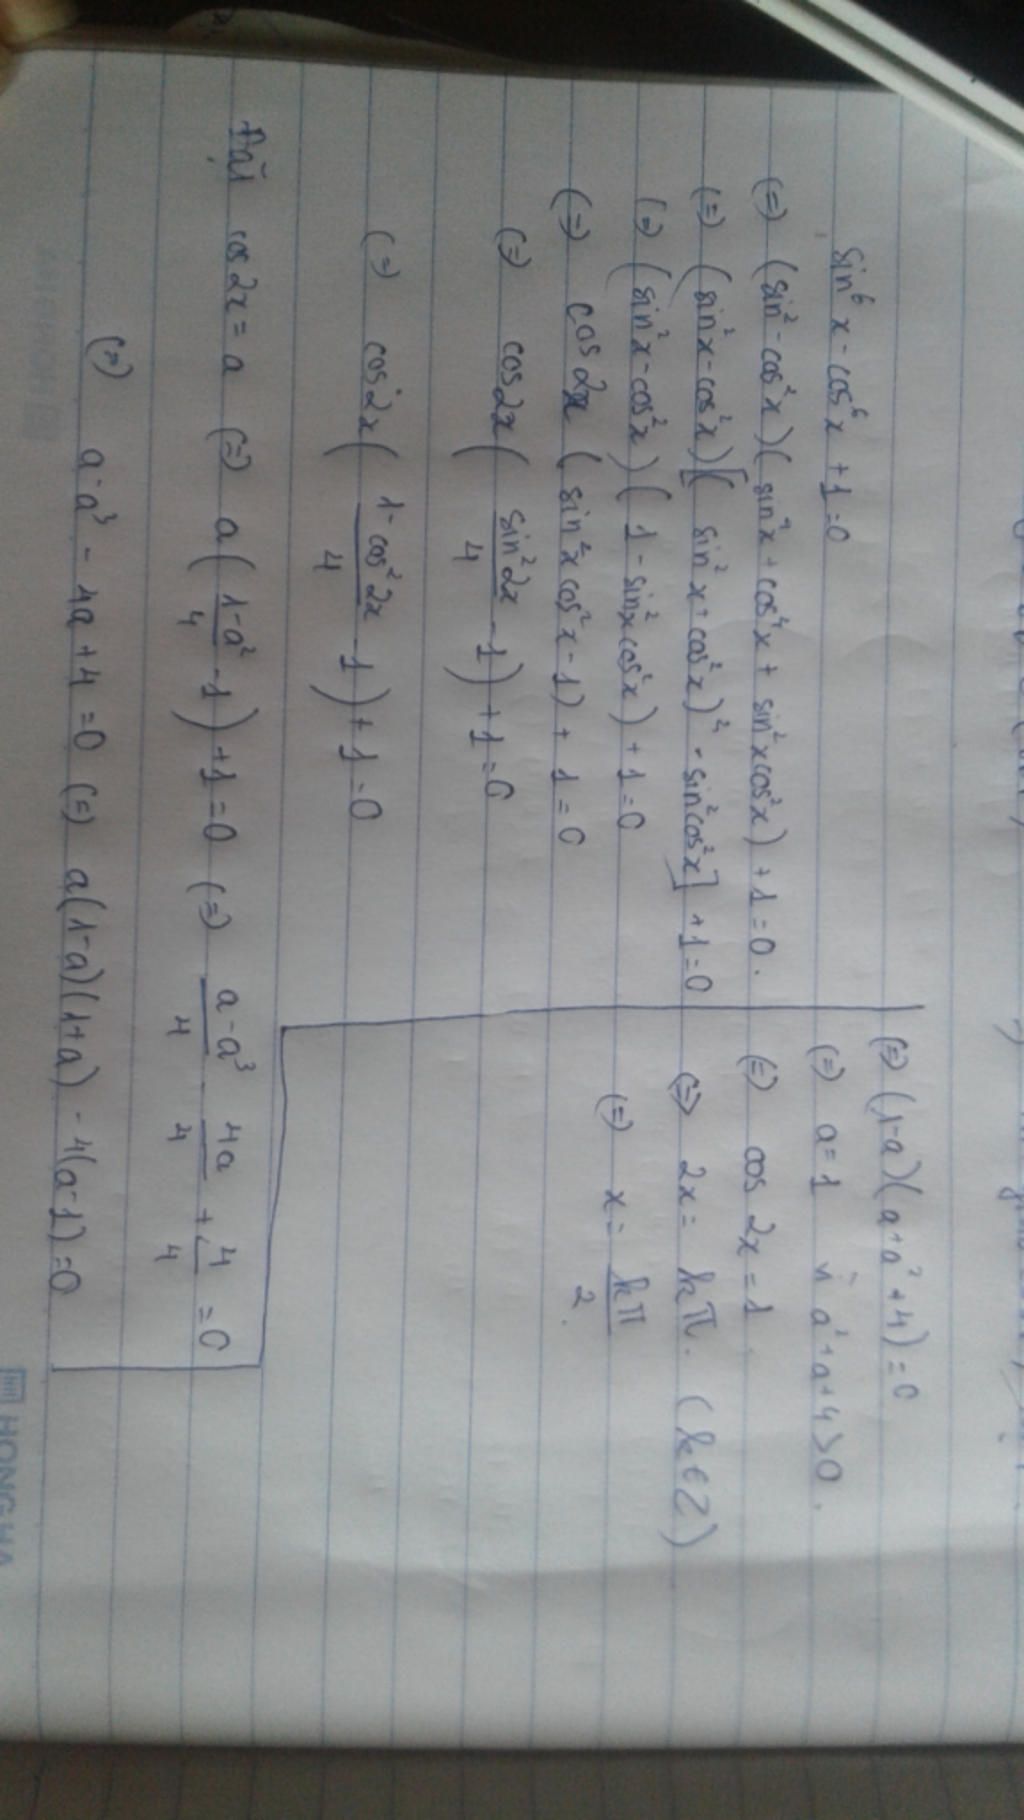 sin⁶x - cos⁶x + 1 = 0
(=) (sin² - cos²x)(sin⁴x + cos⁴x + sin²xcos²x) + 1 = 0.
(=) (sin²x - cos²x)[(sin²x + cos²x)² - sin²cos²x] + 1 = 0
(=) (sin²x - cos²x)(1 - sin²xcos²x) + 1 = 0
(=) cos2x (sin²xcos²x - 1) + 1 = 0
(=) cos2x (sin²2x/4 - 1) + 1 = 0
(=) cos2x (1 - cos²2x/4 - 1) + 1 = 0
Đặt cos2x = a (=) a(1-a²/4 - 1) + 1 = 0 (=) a-a³/4 - 4a/4 + 4/4 = 0
(=) a-a³ - 4a + 4 = 0 (=) a(1-a)(1+a) - 4(a-1) = 0
(=) (1-a)(a+a²+4) = 0
(=) a = 1 vì a²+a+4 > 0.
(=) cos 2x = 1
(=) 2x = kπ. (k ∈ Z)
(=) x = kπ/2.
HONG HA